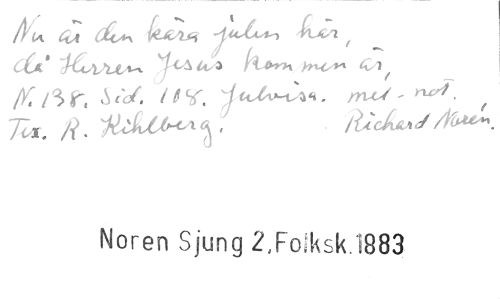 Nu är den kära julen här,
då Herren Jesus kommen är,
N. 138. Sid. 108. Julvisa. mel-not.
Tex. R. Kihlberg. Richard Norén.
Noren Sjung 2,Folksk.1883